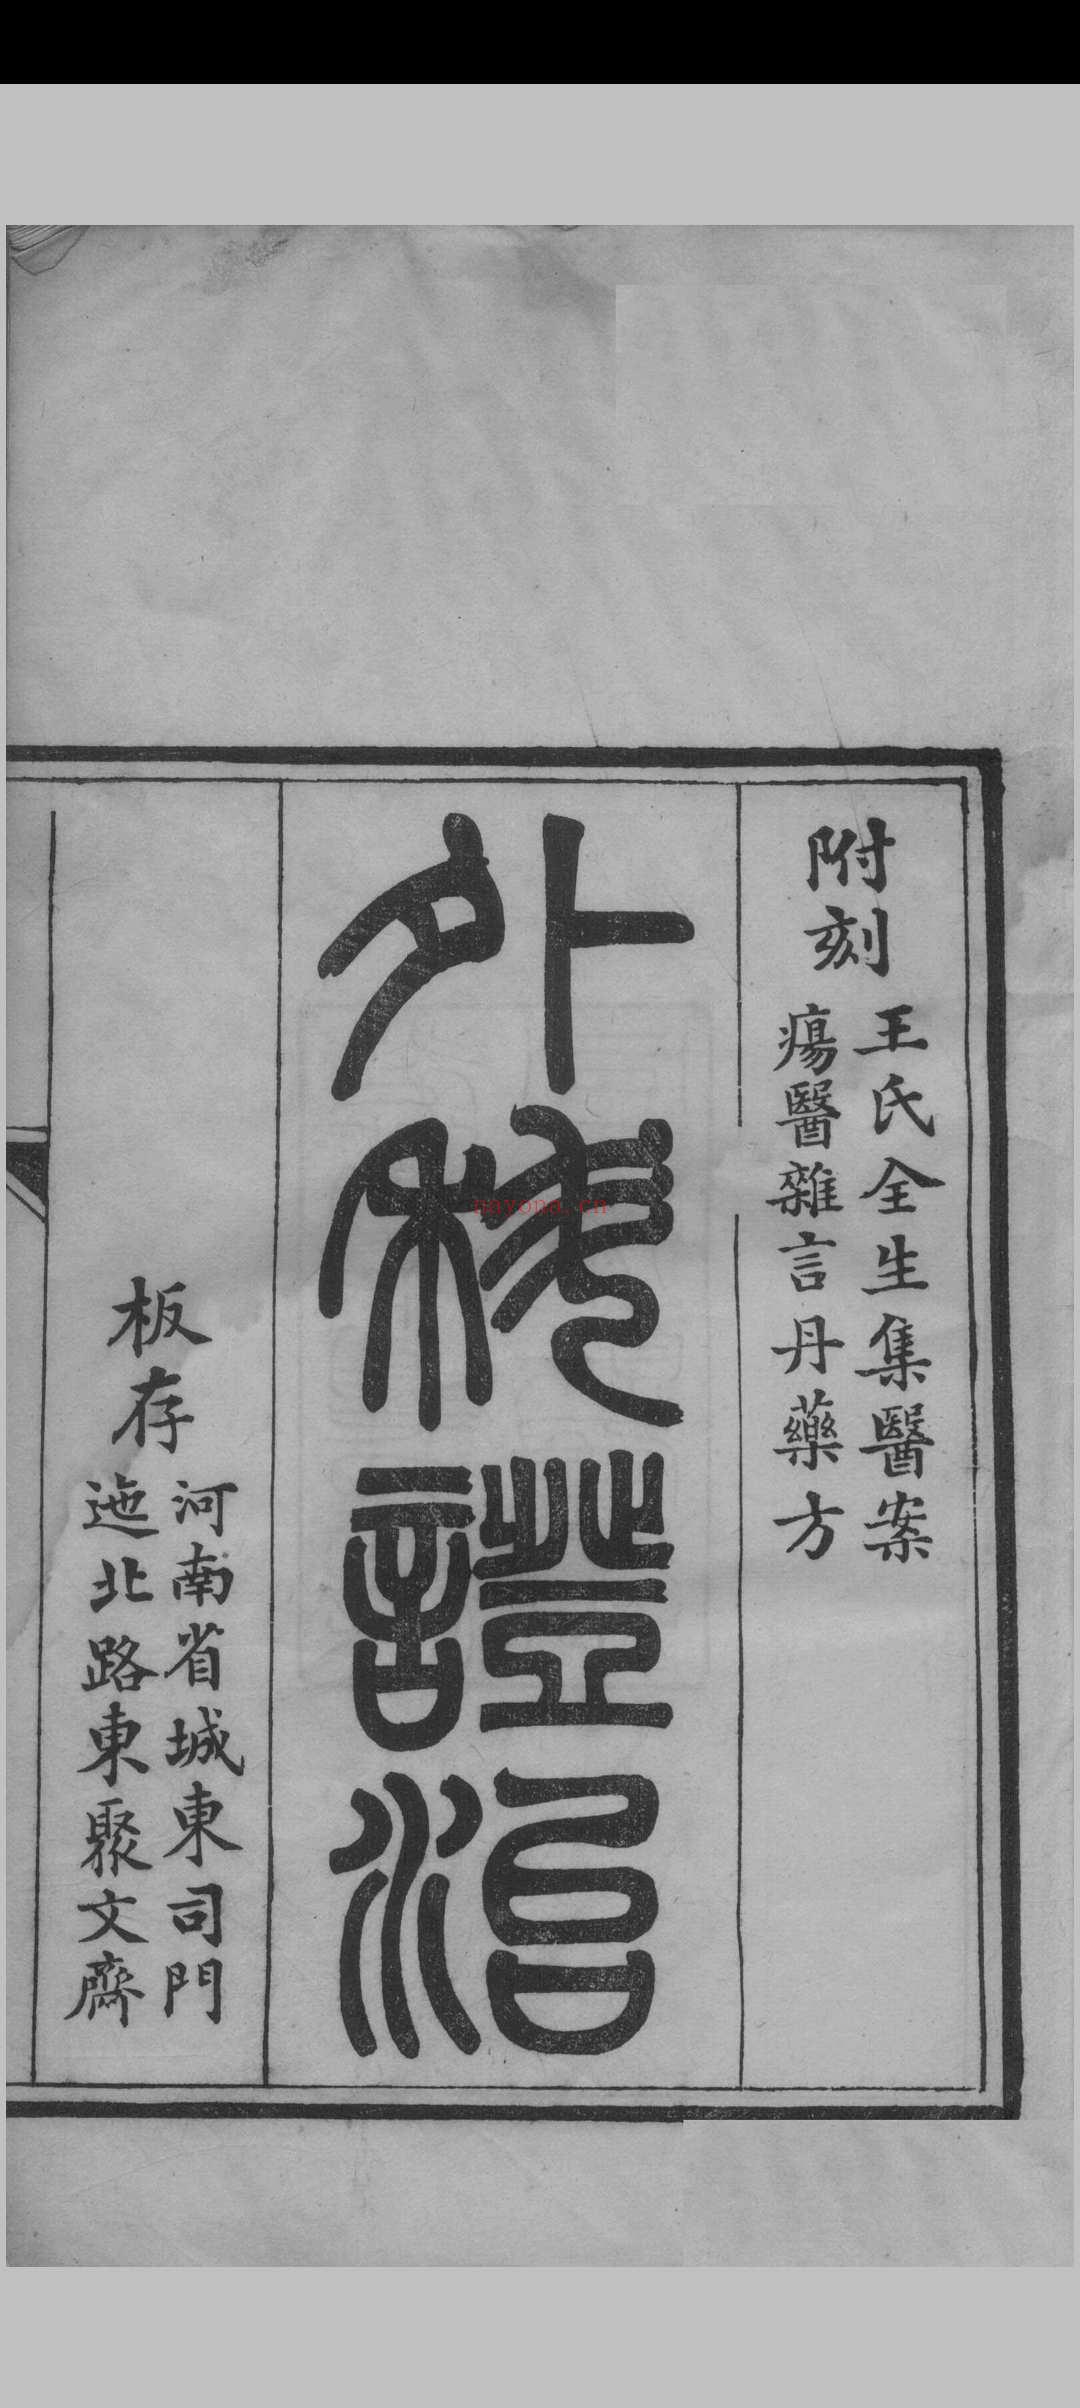 附刻
王氏全生集醫案
瘍醫雜言丹藥方
外科證治
板存
河南省城東司門
迤北路東聚文齋
nayona.cn